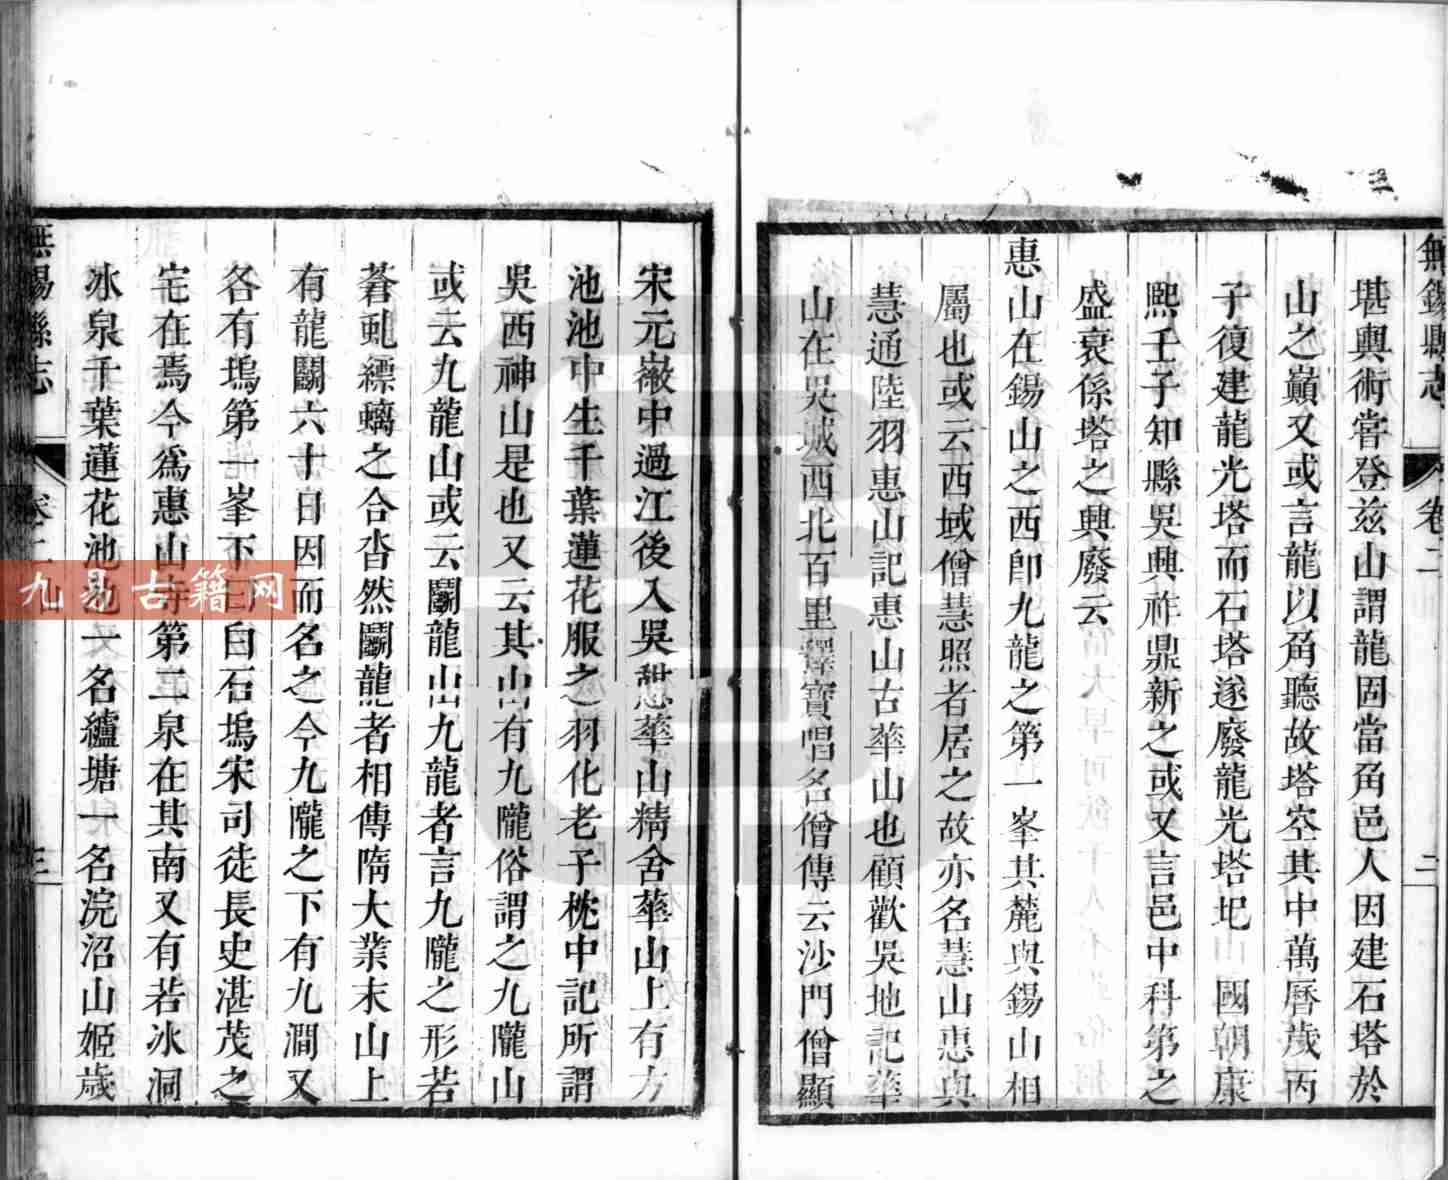 無錫縣志
卷二
二
堪輿術嘗登茲山謂龍固當角邑人因建石塔於
山之巔又或言龍以角聽故塔空其中萬曆歲丙
子復建龍光塔而石塔遂廢龍光塔圮 國朝康
熙壬子知縣吳興祚鼎新之或又言邑中科第之
盛衰係塔之興廢云
惠山在錫山之西卽九龍之第一峯其麓與錫山相
屬也或云西域僧慧照者居之故亦名慧山惠與
慧通陸羽惠山記惠山古華山也顧歡吳地記華
山在吳城西北百里釋寶唱名僧傳云沙門僧顯
宋元徽中過江後入吳憩華山精舍華山上有方
池池中生千葉蓮花服之羽化老子枕中記所謂
吳西神山是也又云其山有九隴俗謂之九隴山
或云九龍山或云鬭龍山九龍者言九隴之形若
蒼虬縹螭之合沓然鬭龍者相傳隋大業末山上
有龍鬭六十日因而名之今九隴之下有九澗又
各有塢第一峯下曰白石塢宋司徒長史湛茂之
宅在焉今爲惠山寺第二泉在其南又有若冰洞
冰泉千葉蓮花池池又名纑塘一名浣沼山姬歲
無錫縣志
卷二
三
九易古籍网